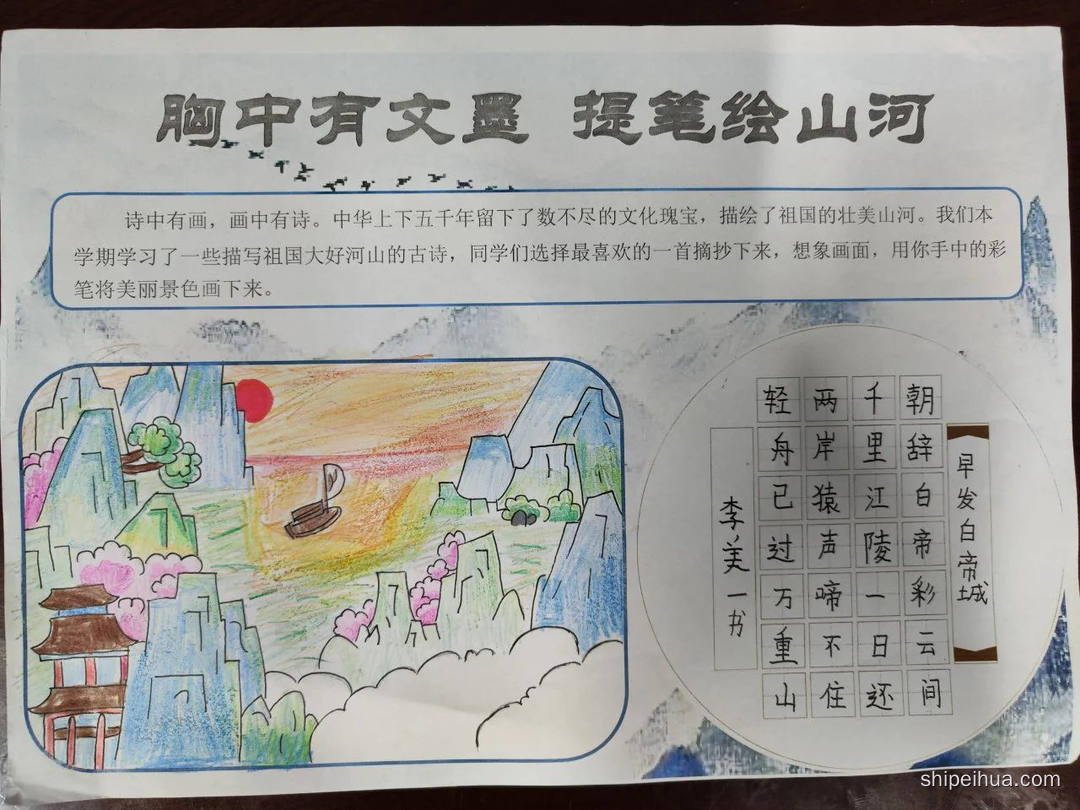 胸中有文墨 提笔绘山河
诗中有画，画中有诗。中华上下五千年留下了数不尽的文化瑰宝，描绘了祖国的壮美山河。我们本
学期学习了一些描写祖国大好河山的古诗，同学们选择最喜欢的一首摘抄下来，想象画面，用你手中的彩
笔将美丽景色画下来。
早发白帝城
朝辞白帝彩云间
千里江陵一日还
两岸猿声啼不住
轻舟已过万重山
李美一书
shipeihua.com